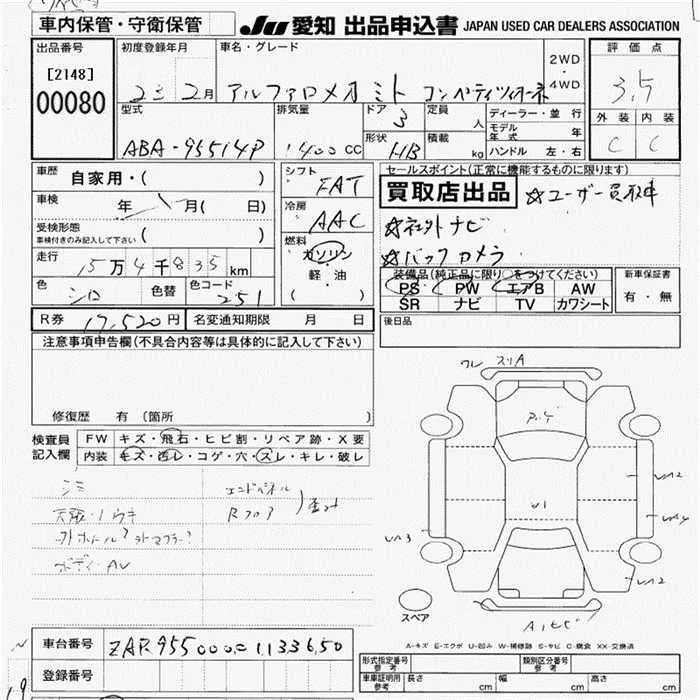 車内保管・守衛保管
JU 愛知 出品申込書 JAPAN USED CAR DEALERS ASSOCIATION
出品番号
[2148]
00080
初度登録年月
23 2月
車名・グレード
アルファロメオ ミト コンペティツィオーネ
2WD
・
4WD
評価点
3.5
外装 内装
C C
型式
ABA-95514P
排気量
1400 CC
ドア
3
形状
HB
定員
人
積載
kg
ディーラー・並行
モデル年式 年
ハンドル 左・右
車歴
自家用・( )
車検
年 月( 日)
受検形態
車検付きのみ記入して下さい ( )
走行
15万4千835km
色
シロ
色替
色コード
251
シフト
FAT
冷房
AAC
燃料
ガソリン
軽・油
( )
セールスポイント(正常に機能するものに限ります)
買取店出品 ☆ユーザー買取車
☆社外ナビ
☆バックカメラ
装備品(純正品に限り○をつけてください)
PS PW エアB AW
SR ナビ TV カワシート
新車保証書
有・無
R券 17,520円
名変通知期限 月 日
後日品
注意事項申告欄(不具合内容等は具体的に記入して下さい)
修復歴 有 (箇所 )
検査員記入欄
FW キズ・飛石・ヒビ割・リペア跡・X要
内装 キズ・汚レ・コゲ・穴・スレ・キレ・破レ
シミ
天張・ノウキ
ボディ・AU
エンドパネル
Rフロア
スリA
U1
UA3
UA2
UA2
スペア
A-キズ E-エクボ U-凹み W-補修跡 S-サビ C-腐食 XX-交換済
車台番号
ZAR955000001133650
登録番号
形式指定番号
参考
類別区分番号
参考
車庫証明用
参考
長さ cm
幅 cm
高さ cm